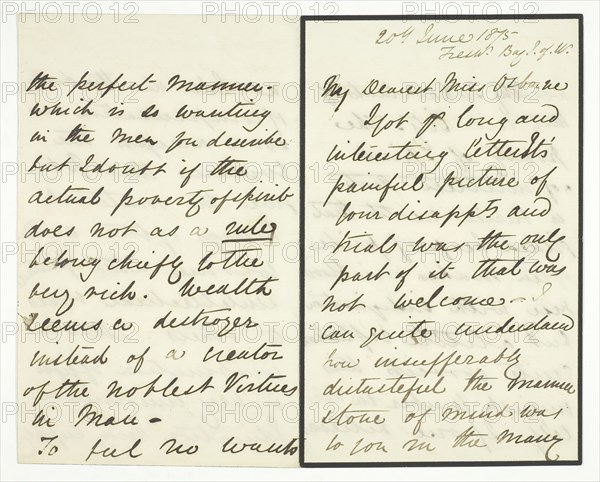 20th June 1875
Freshr. Bay I. of W.
My Dearest Miss Osborne
I got yr long and
interesting letter Its
painful picture of
your disappts and
trials was the only
part of it that was
not welcome – I
can quite understand
how insufferably
distasteful the manner
& tone of mind was
to you in the many
the perfect manner –
which is so wanting
in the men you describe
but I doubt if the
actual poverty of spirit
does not as a rule
belong chiefly to the
very rich. Wealth
seems a destroyer
instead of a creator
of the noblest Virtues
in Man –
To feel no wants